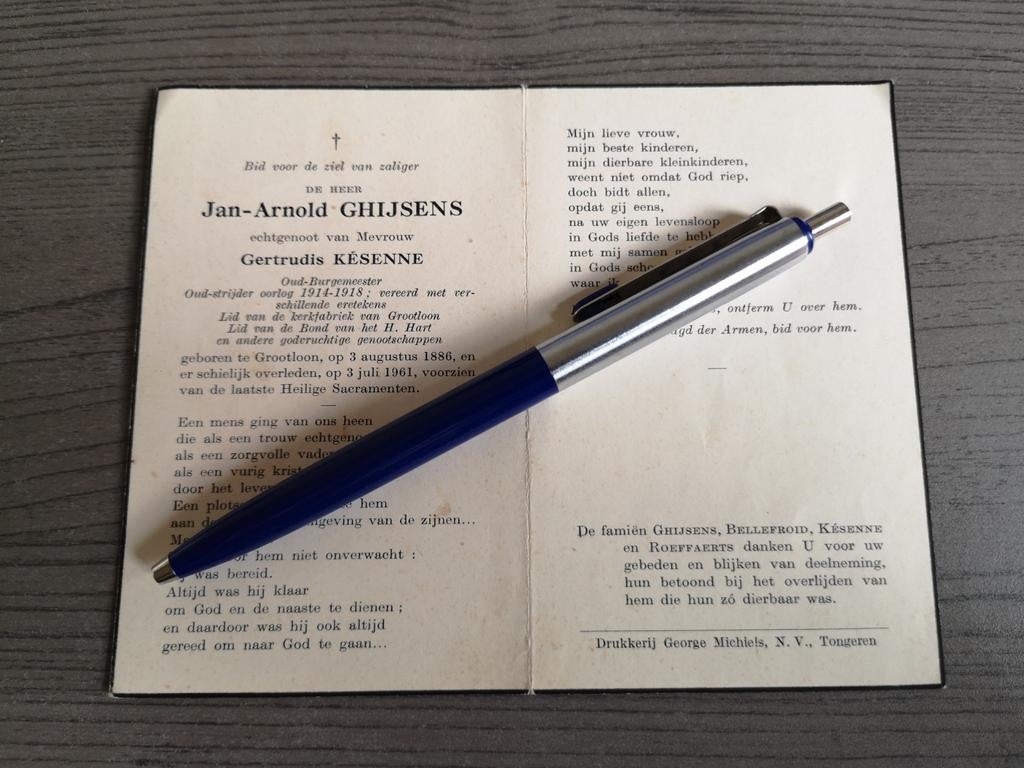 †
Bid voor de ziel van zaliger
DE HEER
Jan-Arnold GHIJSENS
echtgenoot van Mevrouw
Gertrudis KÉSENNE
Oud-Burgemeester
Oud-strijder oorlog 1914-1918 ; vereerd met ver-
schillende eretekens
Lid van de kerkfabriek van Grootloon
Lid van de Bond van het H. Hart
en andere godvruchtige genootschappen
geboren te Grootloon, op 3 augustus 1886, en
er schielijk overleden, op 3 juli 1961, voorzien
van de laatste Heilige Sacramenten.
Een mens ging van ons heen
die als een trouw
als een zorgvolle
als een vurig
door het
Een hem
aan van de zijnen...
hem niet onverwacht :
was bereid.
Altijd was hij klaar
om God en de naaste te dienen ;
en daardoor was hij ook altijd
gereed om naar God te gaan...
Mijn lieve vrouw,
mijn beste kinderen,
mijn dierbare kleinkinderen,
weent niet omdat God riep,
doch bidt allen,
opdat gij eens,
na uw eigen levensloop
in Gods liefde te
met mij samen
in Gods
waar
ontferm U over hem.
der Armen, bid voor hem.
De famiën GHIJSENS, BELLEFROID, KÉSENNE
en ROEFFAERTS danken U voor uw
gebeden en blijken van deelneming,
hun betoond bij het overlijden van
hem die hun zó dierbaar was.
Drukkerij George Michiels, N. V., Tongeren